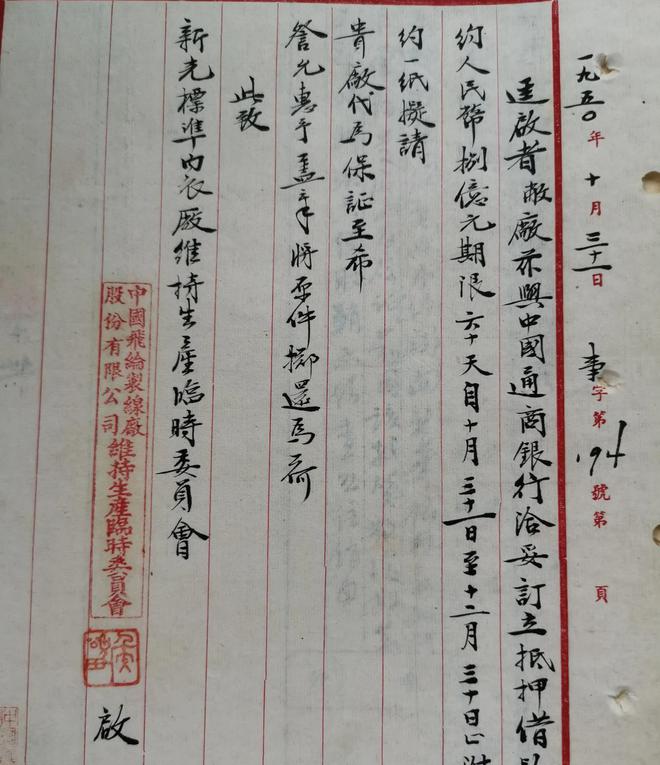 一九五〇年十月三十一日 事字第194號第 頁
逕啟者敝廠茲與中國通商銀行洽妥訂立抵押借
約人民幣捌億元期限六十天自十月三十一日至十二月三十日止
約一紙擬請
貴廠代為保証至希
詧允惠予蓋章將原件擲還為荷
此致
新光標準內衣廠維持生產臨時委員會
中國飛綸製線廠
股份有限公司維持生產臨時委員會
啟